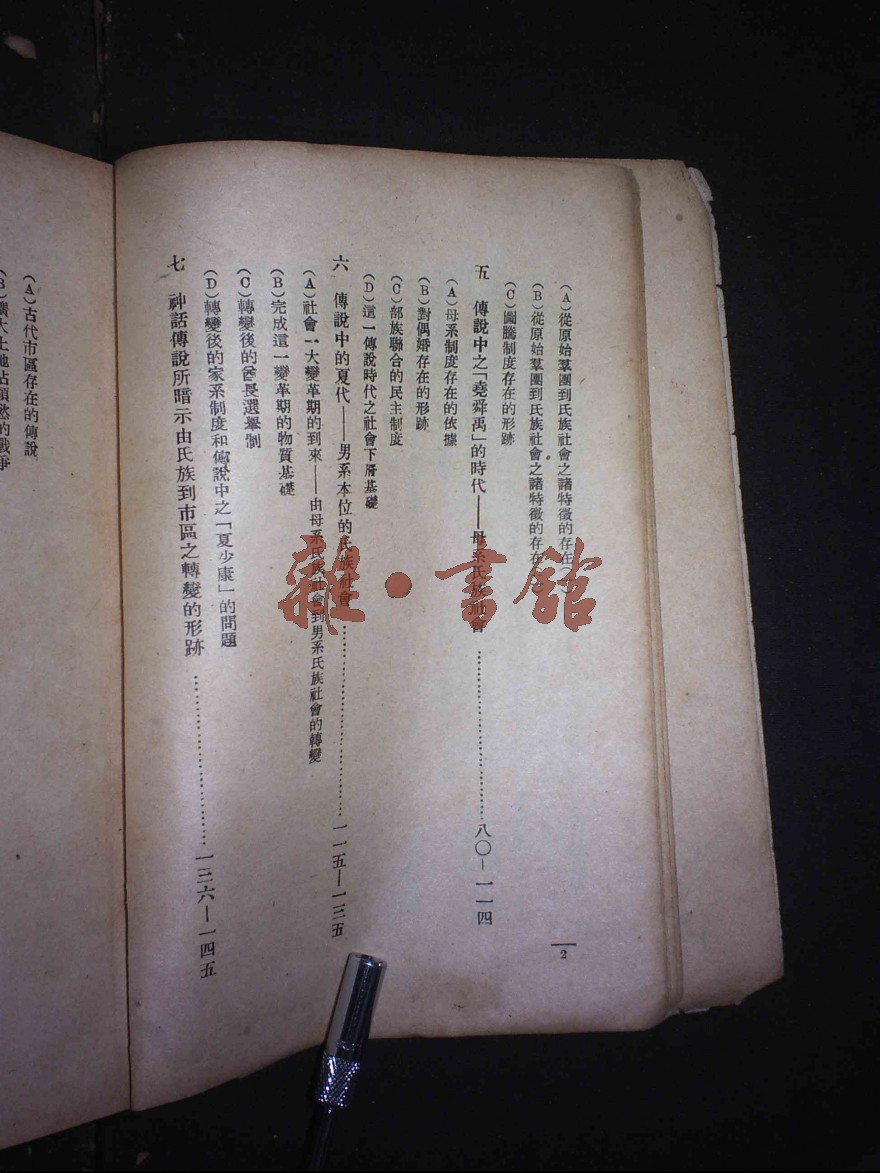 （A）從原始羣團到氏族社會之諸特徵的存在（一）
（B）從原始羣團到氏族社會之諸特徵的存在（二）
（C）圖騰制度存在的形跡
五　傳說中之「堯舜禹」的時代——母系氏族社會……………………八〇—一一四
（A）母系制度存在的依據
（B）對偶婚存在的形跡
（C）部族聯合的民主制度
（D）這一傳說時代之社會下層基礎
六　傳說中的夏代——男系本位的氏族社會……………………一一五—一三五
（A）社會一大變革期的到來——由母系氏族社會到男系氏族社會的轉變
（B）完成這一變革期的物質基礎
（C）轉變後的酋長選舉制
（D）轉變後的家系制度和傳說中之「夏少康」的問題
七　神話傳說所暗示由氏族到市區之轉變的形跡……………………一三六—一四五
2
（A）古代市區存在的傳說
（B）擴大土地佔領慾的戰爭
雜·書館